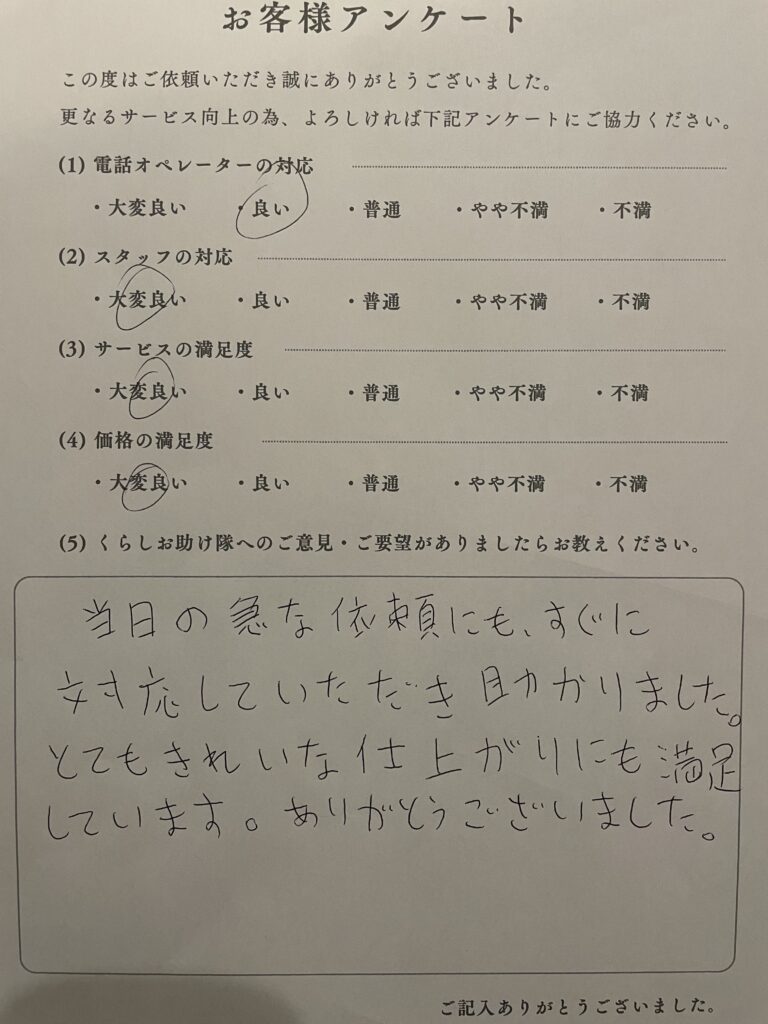 お客様アンケート
この度はご依頼いただき誠にありがとうございました。
更なるサービス向上の為、よろしければ下記アンケートにご協力ください。
(1) 電話オペレーターの対応
・大変良い ・良い ・普通 ・やや不満 ・不満
(2) スタッフの対応
・大変良い ・良い ・普通 ・やや不満 ・不満
(3) サービスの満足度
・大変良い ・良い ・普通 ・やや不満 ・不満
(4) 価格の満足度
・大変良い ・良い ・普通 ・やや不満 ・不満
(5) くらしお助け隊へのご意見・ご要望がありましたらお教えください。
当日の急な依頼にも、すぐに
対応していただき助かりました。
とてもきれいな仕上がりにも満足
しています。ありがとうございました。
ご記入ありがとうございました。